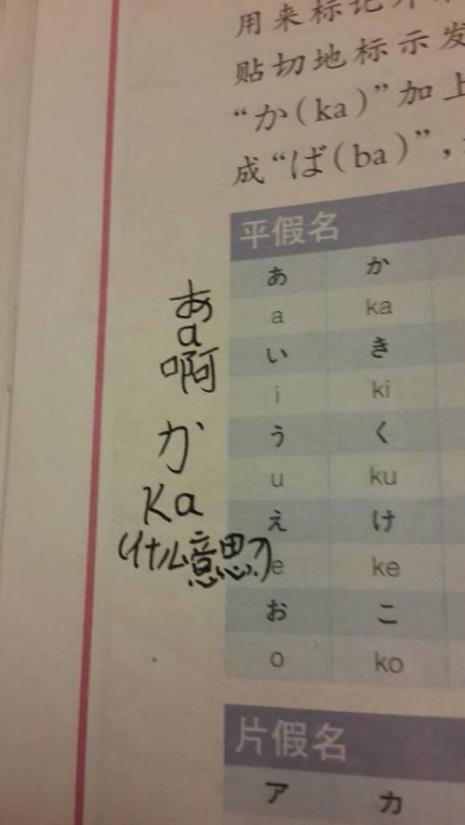 用来标记外来
贴切地标示发
“か(ka)”加上
成“ば(ba)”，
平假名
あ か
a ka
い き
i ki
う く
u ku
え け
e ke
お こ
o ko
片假名
ア カ
あ
a
啊
か
Ka
(什么意思?)